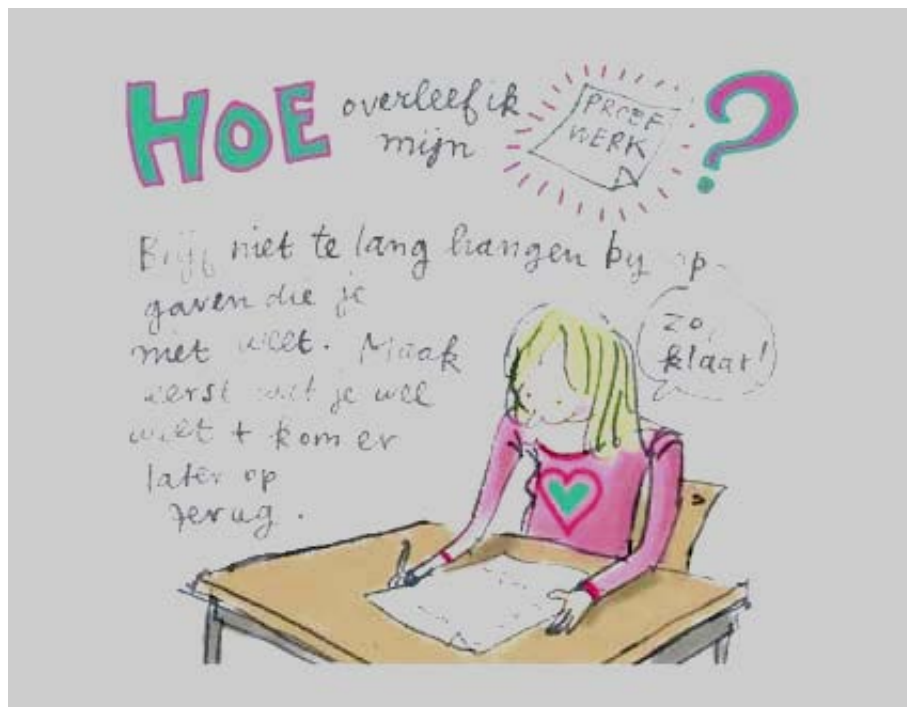 HOE overleef ik
mijn PROEF
WERK ?
Blijf niet te lang hangen by op-
gaven die je
niet weet. Maak
eerst wat je wel
weet + kom er
later op
terug.
Zo,
klaar!